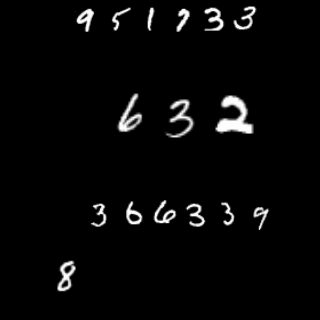 951733
632
366339
8